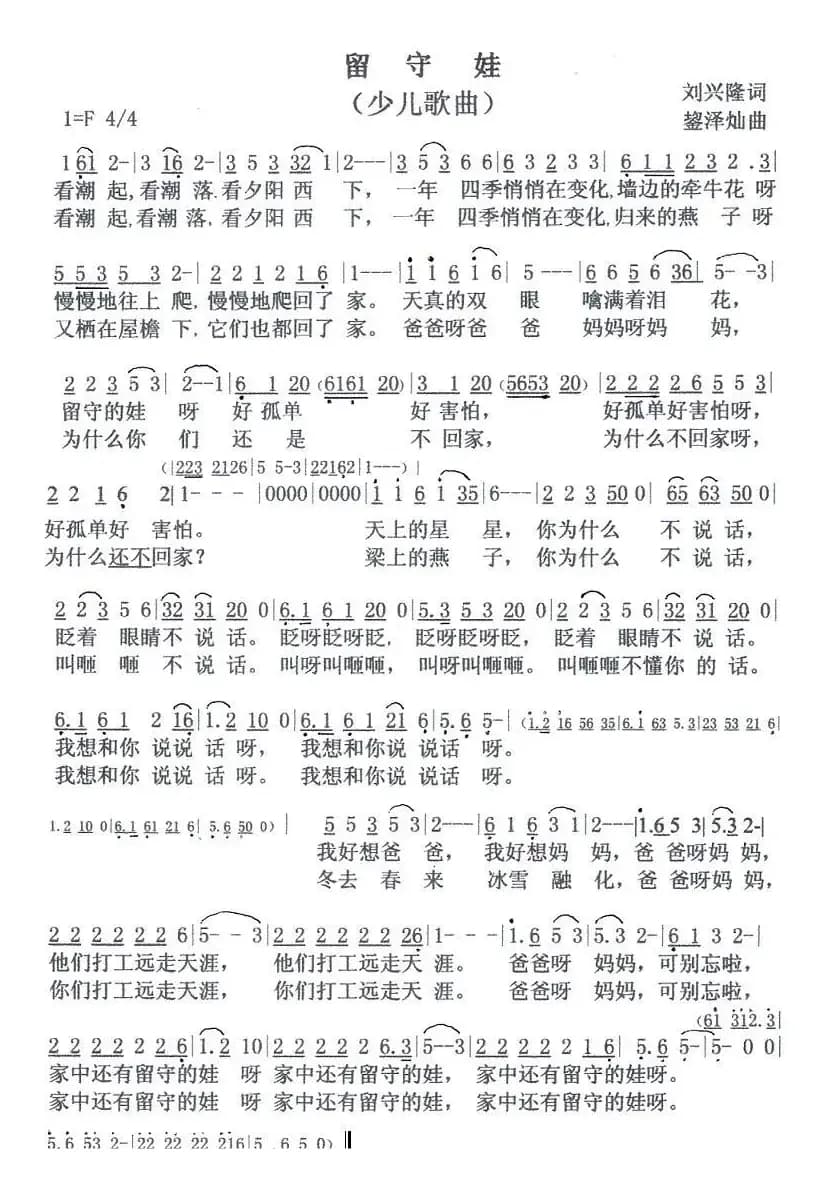 留守娃
（少儿歌曲）
刘兴隆词
1=F 4/4
鋆泽灿曲
1 61 2-|3 16 2-|3 5 3 32 1|2---|3 5 3 6 6|6 3 2 3 3|6 1 1 2 3 2 .3|
看潮 起,看潮 落.看夕阳 西 下, 一年 四季悄悄在变化,墙边的牵牛花 呀
看潮 起,看潮 落,看夕阳 西 下, 一年 四季悄悄在变化,归来的燕 子 呀
5 5 3 5 3 2-|2 2 1 2 1 6|1---|1 1 6 1 6|5---|6 6 5 6 36|5- -3|
慢慢地往上 爬, 慢慢地爬回了 家。 天真的双 眼 噙满着泪 花,
又栖在屋檐 下, 它们也都回了 家。 爸爸呀爸 爸 妈妈呀妈 妈,
2 2 3 5 3|2--1|6 1 20 (6161 20)|3 1 20 (5653 20)|2 2 2 2 6 5 5|
留守的娃 呀 好 孤单 好 害怕, 好孤单好害怕呀,
为什么你 们 还 是 不 回家, 为什么不回家呀,
(|223 2126|5 5-3|22162|1---)|
2 2 1 6 2|1- - -|0000|0000|1 1 6 1 35|6---|2 2 3 50 0|65 63 50 0|
好孤单好 害怕。 天上的星 星, 你为什么 不 说 话,
为什么还不回家? 梁上的燕 子, 你为什么 不 说 话,
2 2 3 5 6|32 31 20 0|6.1 6 1 20 0|5.3 5 3 20 0|2 2 3 5 6|32 31 20 0|
眨着 眼睛不 说 话。 眨呀眨呀眨, 眨呀眨呀眨, 眨着 眼睛不 说 话。
叫咂 咂 不 说 话。 叫呀叫咂咂, 叫呀叫咂咂。 叫咂咂不懂你 的 话。
6.1 6 1 2 16|1.2 10 0|6.1 6 1 21 6|5.6 5-|(1.2 16 56 35|6.1 63 5.3|23 53 21 6|
我想和你 说说 话 呀, 我想和你说 说话 呀。
我想和你 说说 话 呀。 我想和你说 说话 呀。
1.2 10 0|6.1 61 21 6|5.6 50 0)| 5 5 3 5 3|2---|6 1 6 3 1|2---|1.6 5 3|5.3 2-|
我好想爸 爸, 我好想妈 妈, 爸 爸呀妈 妈,
冬去 春 来 冰雪 融 化, 爸 爸呀妈 妈,
2 2 2 2 2 2 6|5- - 3|2 2 2 2 2 26|1- - -|1.6 5 3|5.3 2-|6 1 3 2-|
他们打工远走天涯, 他们打工远走天 涯。 爸爸呀 妈妈, 可别忘啦,
你们打工远走天涯, 你们打工远走天 涯。 爸爸呀 妈妈, 可别忘啦,
(61 312.3|
2 2 2 2 2 2 6|1.2 10|2 2 2 2 2 6.3|5--3|2 2 2 2 2 1 6|5.6 5-|5- 0 0|
家中还有留守的娃 呀 家中还有留守的娃, 家中还有留守的娃呀。
家中还有留守的娃 呀 家中还有留守的娃, 家中还有留守的娃呀。
5.6 53 2-|22 22 22 216|5 .6 5 0)